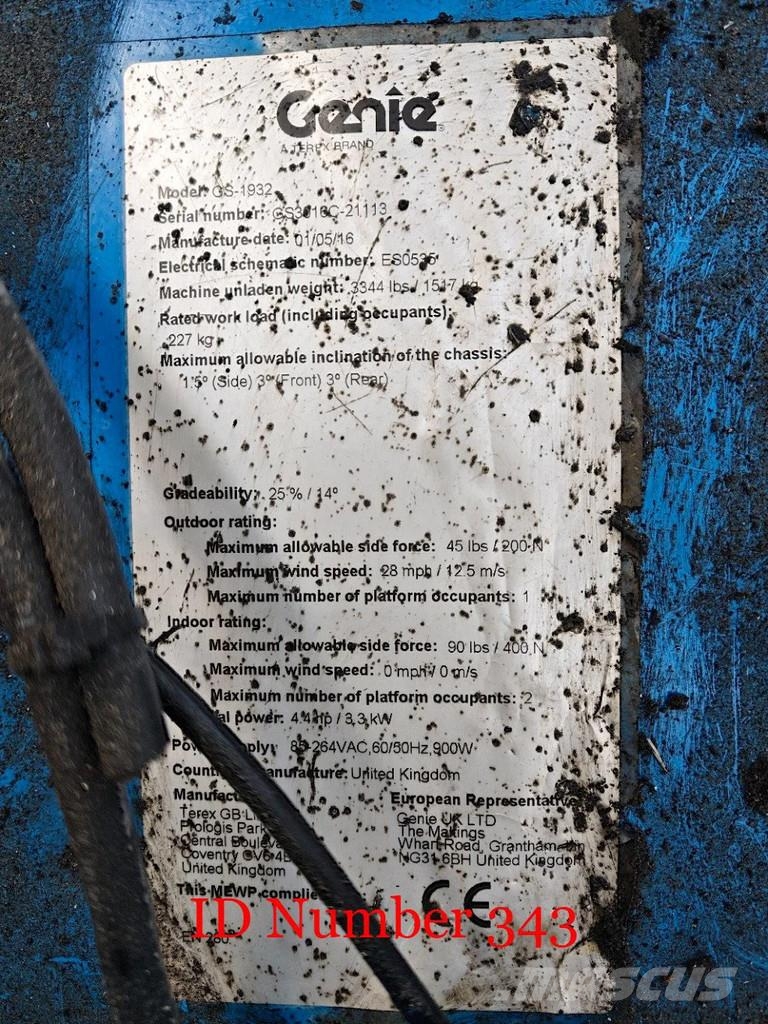 Genie
A TEREX BRAND
Model: GS-1932
Serial number: GS3016C-21113
Manufacture date: 01/05/16
Electrical schematic number: ES0535
Machine unladen weight: 3344 lbs / 1517 kg
Rated work load (including occupants):
227 kg
Maximum allowable inclination of the chassis:
1.5º (Side) 3º (Front) 3º (Rear)
Gradeability: 25 % / 14º
Outdoor rating:
Maximum allowable side force: 45 lbs / 200 N
Maximum wind speed: 28 mph / 12.5 m/s
Maximum number of platform occupants: 1
Indoor rating:
Maximum allowable side force: 90 lbs / 400 N
Maximum wind speed: 0 mph / 0 m/s
Maximum number of platform occupants: 2
power: 4.4 hp / 3,3 kW
85-264VAC,60/50Hz,900W
United Kingdom
European Representative
Terex GB
Genie UK LTD
Prologis Park
The Maltings
Central
Wharf Road, Grantham,
Coventry
NG31 6BH United Kingdom
United Kingdom
This MEWP
CE
ID Number 343
EN 280
MASCUS